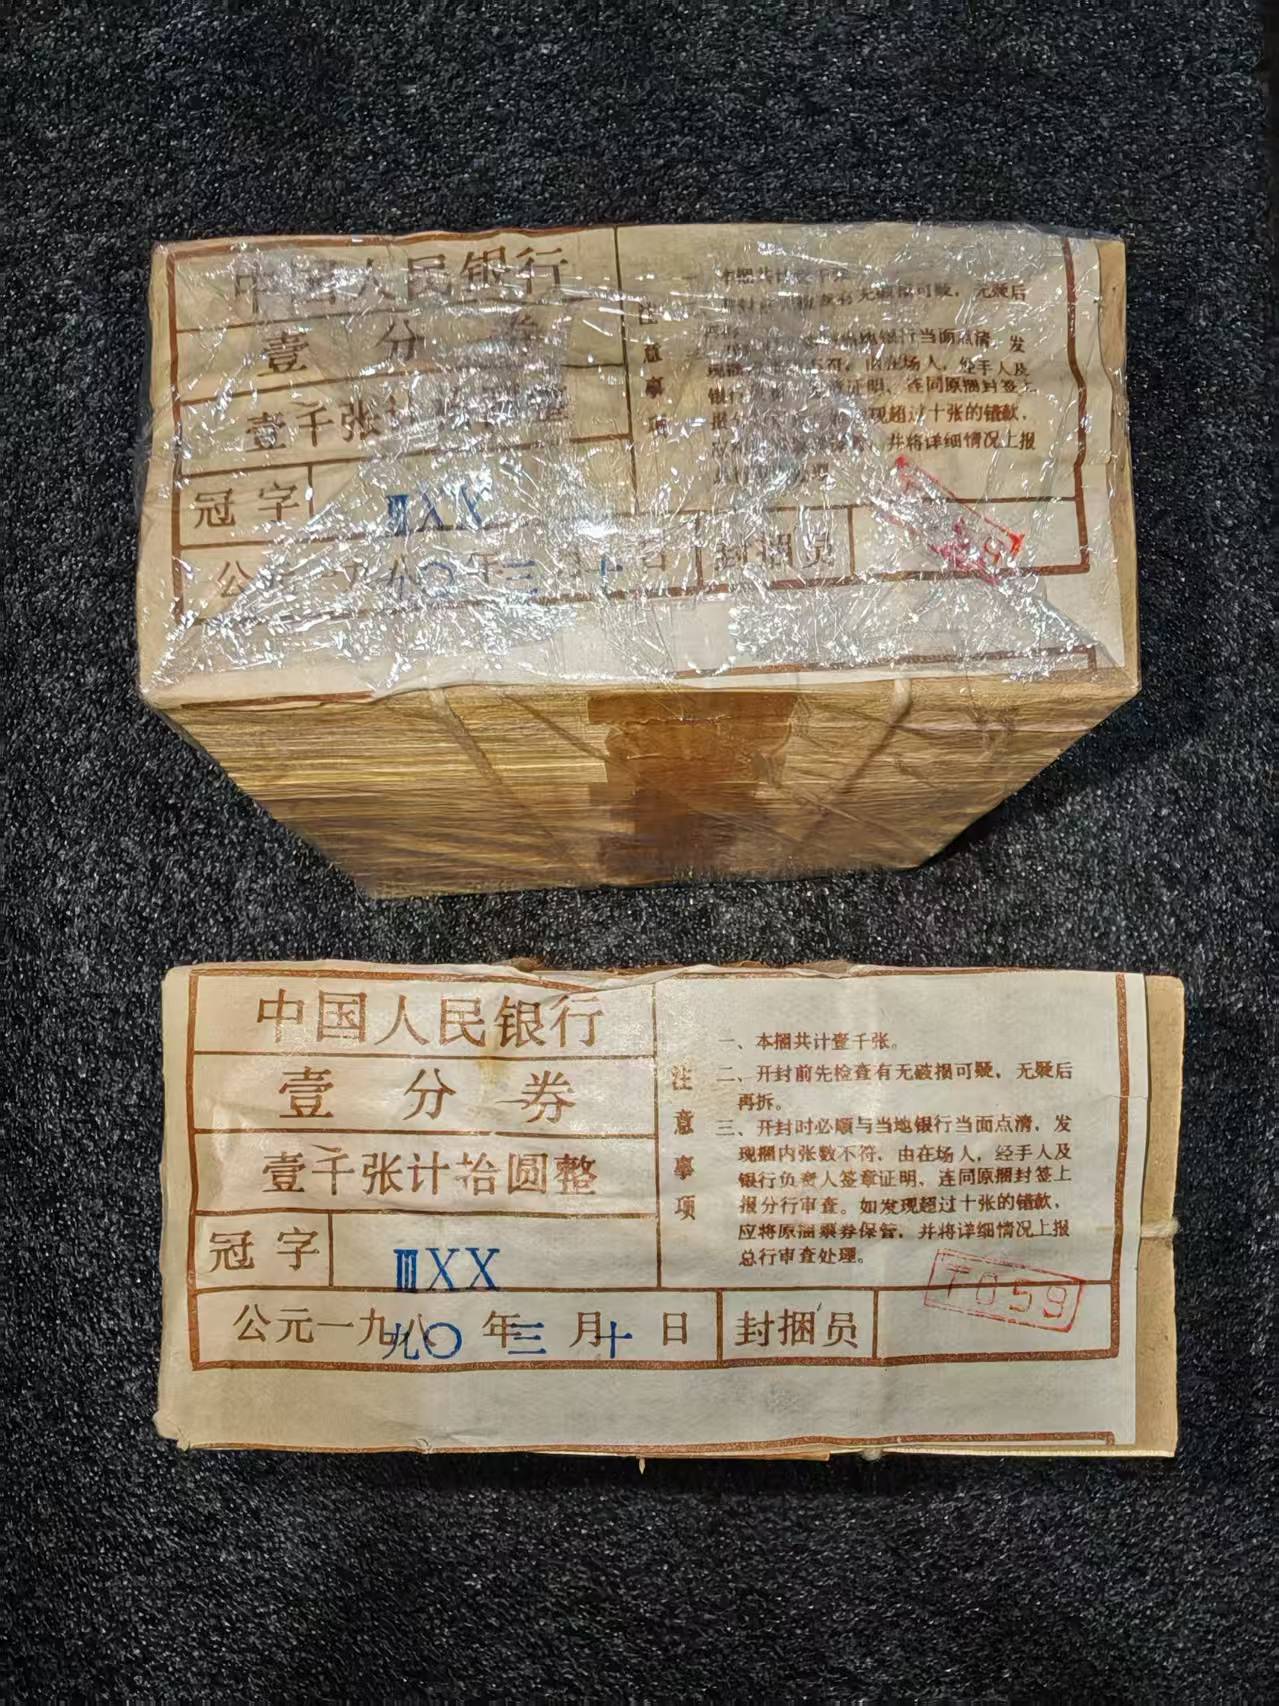 中国人民银行
壹 分 券
壹千张计拾
冠字 ⅢXX
公元一九九〇年三月十日 封捆员
注意事项
一、本捆共计壹千张
有无破损可疑,无疑后
再拆
地银行当面点清,发
不符,由在场人,经手人及
银行 证明,连同原捆封签上
报分 现超过十张的错款,
应将 并将详细情况上报
中国人民银行
壹 分 券
壹千张计拾圆整
冠字 ⅢXX
公元一九八九〇年三月十日 封捆员 T059
注意事项
一、本捆共计壹千张。
二、开封前先检查有无破损可疑,无疑后
再拆。
三、开封时必顺与当地银行当面点清,发
现捆内张数不符,由在场人,经手人及
银行负责人签章证明,连同原捆封签上
报分行审查。如发现超过十张的错款,
应将原捆票券保管,并将详细情况上报
总行审查处理。